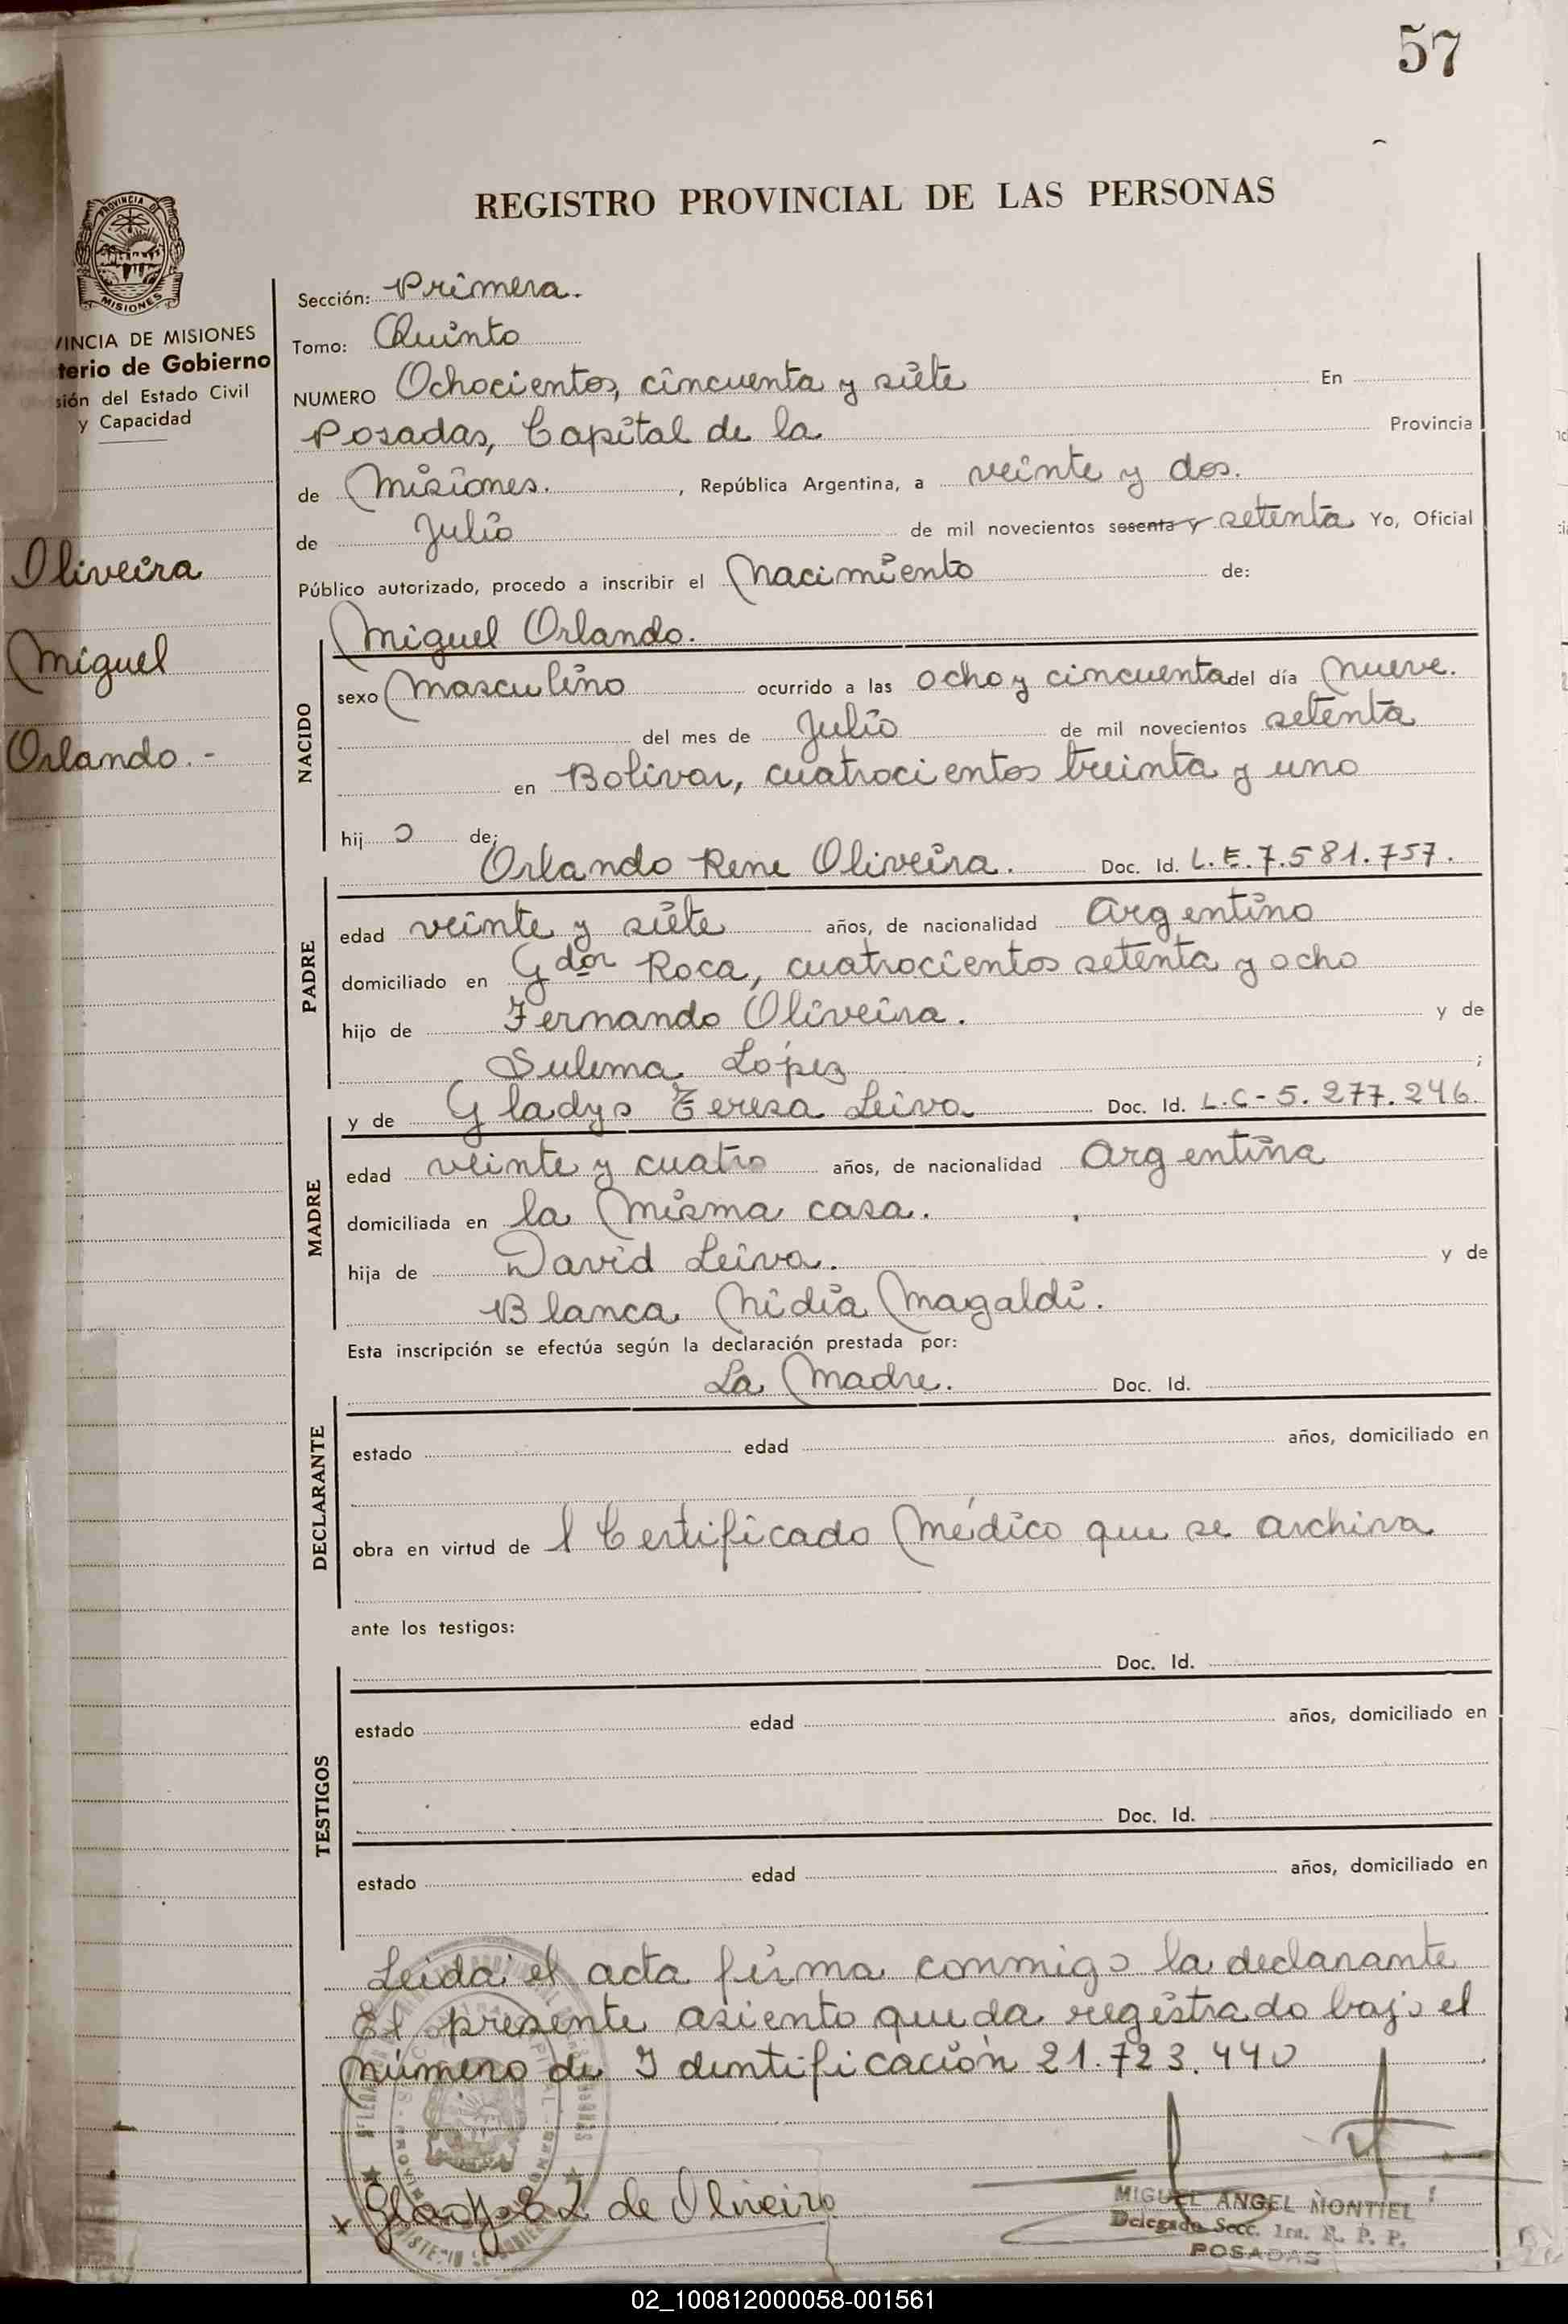 57
REGISTRO PROVINCIAL DE LAS PERSONAS
PROVINCIA DE MISIONES
VINCIA DE MISIONES
terio de Gobierno
sión del Estado Civil
y Capacidad
Oliveira
Miguel
Orlando.-
Sección: Primera.
Tomo: Quinto
NUMERO Ochocientos, cincuenta y siete En
Posadas, Capital de la Provincia
de Misiones. , República Argentina, a veinte y dos.
de Julio de mil novecientos sesenta y setenta Yo, Oficial
Público autorizado, procedo a inscribir el Nacimiento de:
Miguel Orlando.
NACIDO
sexo Masculino ocurrido a las ocho y cincuenta del día Nueve.
del mes de Julio de mil novecientos setenta
en Bolivar, cuatrocientos treinta y uno
hij o de:
Orlando Rene Oliveira. Doc. Id. L.E.7.581.757.
PADRE
edad veinte y siete años, de nacionalidad Argentino
domiciliado en Gdor Roca, cuatrocientos setenta y ocho
hijo de Fernando Oliveira. y de
Sulema López ;
y de Gladys Teresa Leiva Doc. Id. L.C-5.277.246.
MADRE
edad veinte y cuatro años, de nacionalidad Argentina
domiciliada en la misma casa.
hija de David Leiva. y de
Blanca Nidia Magaldi.
Esta inscripción se efectúa según la declaración prestada por:
La Madre. Doc. Id.
DECLARANTE
estado edad años, domiciliado en
obra en virtud de l Certificado Médico que se archiva
ante los testigos:
Doc. Id.
TESTIGOS
estado edad años, domiciliado en
Doc. Id.
estado edad años, domiciliado en
Leida el acta firma conmigo la declarante
El presente asiento queda registrado bajo el
número de Identificación 21.723.440
de Oliveira
MIGUEL ANGEL MONTIEL
Delegado Secc. 1ra. R. P. P.
POSADAS
02_100812000058-001561